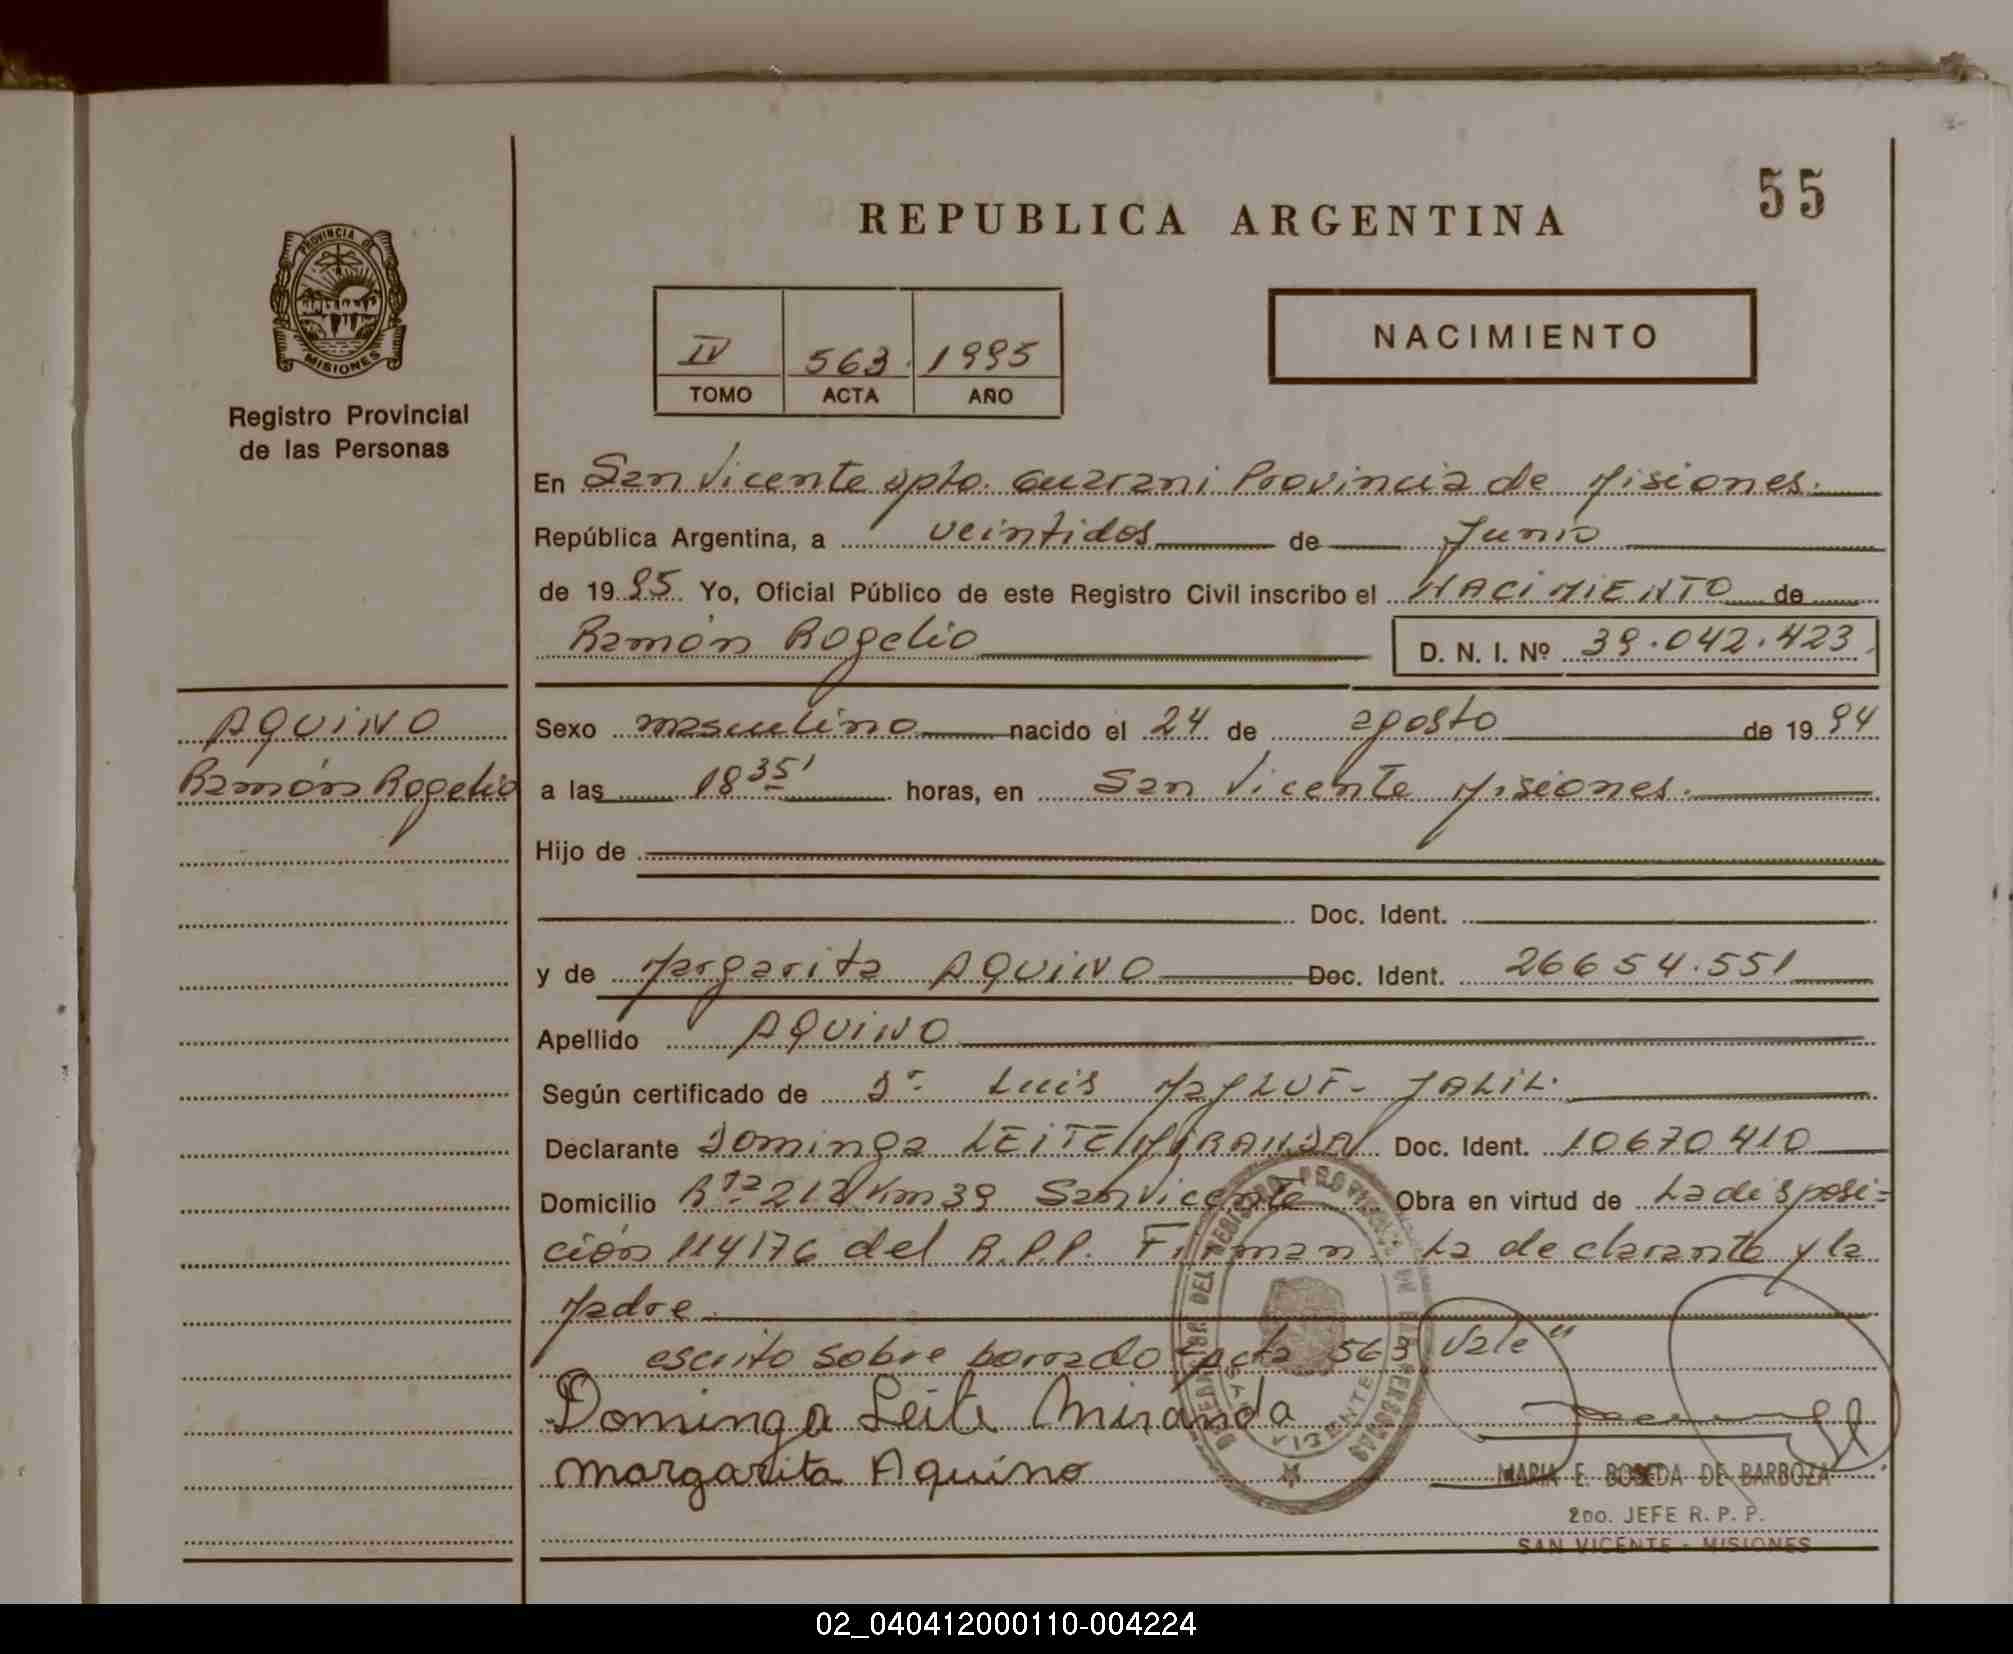 55
REPUBLICA ARGENTINA
PROVINCIA DE
MISIONES
Registro Provincial
de las Personas
NACIMIENTO
IV 563 1995
TOMO ACTA AÑO
En San Vicente dpto. Guarani Provincia de Misiones.
República Argentina, a veintidos de Junio
de 1995 Yo, Oficial Público de este Registro Civil inscribo el NACIMIENTO de
Ramón Rogelio D. N. I. Nº 39.042.423
AQUINO
Ramón Rogelio
Sexo masculino nacido el 24 de agosto de 1994
a las 18 35' horas, en San Vicente Misiones.
Hijo de
Doc. Ident.
y de Margarita AQUINO Doc. Ident. 26654.551
Apellido AQUINO
Según certificado de Dr. Luis MaYLUF- JALIL.
Declarante Dominga LEITE MIRANDA Doc. Ident. 10670410
Domicilio Rta 212 Km 39 San Vicente Obra en virtud de La disposi=
ción 114176 del R.P.P. Firman. La declarante y la
Madre
escrito sobre borrado "Acta 563 Vale"
Dominga Leite Miranda
Margarita Aquino
MARIA E. BOBEDA DE BARBOZA
2DO. JEFE R. P. P.
SAN VICENTE - MISIONES
02_040412000110-004224